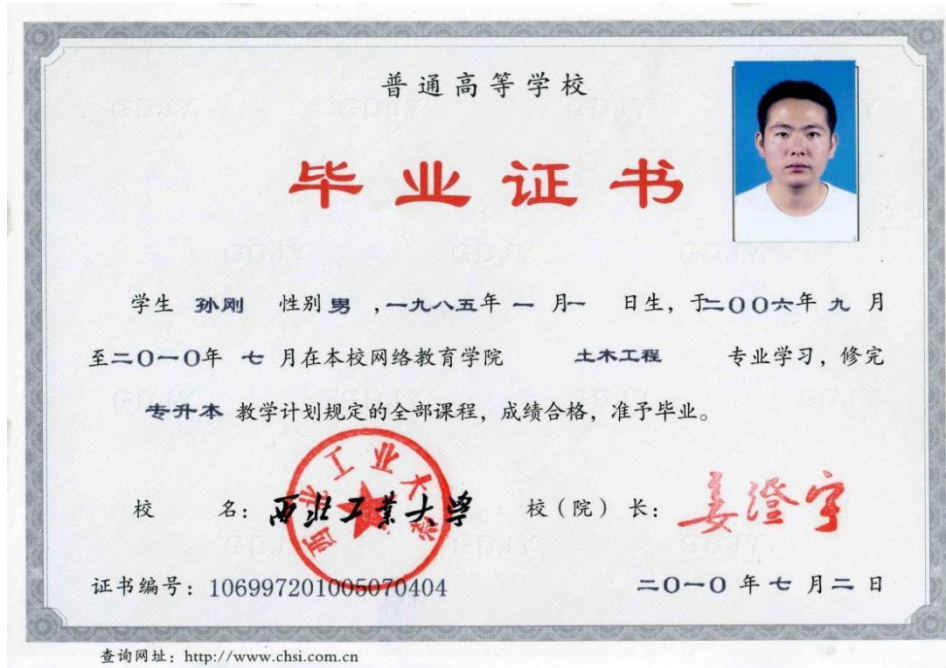 普通高等学校
毕业证书
学生 孙刚 性别 男 ,一九八五年 一 月一 日生，于二〇〇六年 九 月
至二〇一〇年 七 月在本校网络教育学院 土木工程 专业学习，修完
专升本 教学计划规定的全部课程，成绩合格，准予毕业。
校 名：西北工业大学 校（院）长：姜澄宇
西北工业大学
证书编号：106997201005070404 二〇一〇 年 七 月 二 日
查询网址：http://www.chsi.com.cn